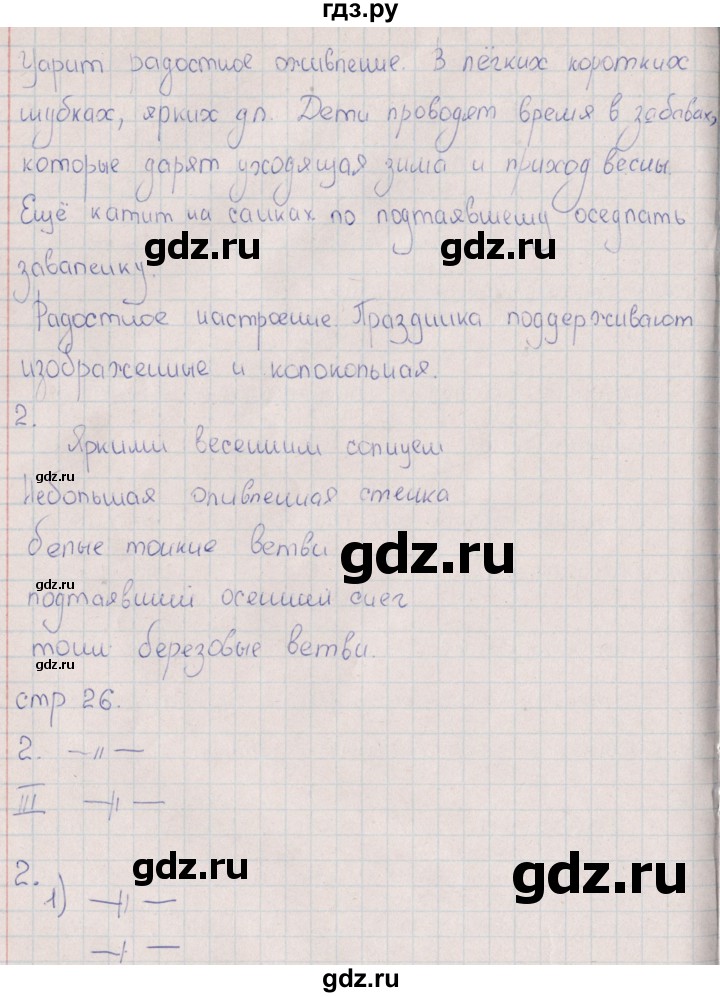 гдз.ру
Царит радостное оживление. В лёгких коротких
шубках, ярких дп. Дети проводят время в забавах,
которые дарят уходящая зима и приход весны.
Ещё катит на санках по подтаявшему оседлать
gdz.ru gdz.ru
завапенку.
Радостное настроение. Праздника поддерживают
изображенные и колокольная.
2.
Яркими весенним солнцем
gdz.ru
Небольшая оливленная стенка
белые тонкие ветви
gdz.ru
gdz.ru
подтаявший осенний снег
gdz.ru
тони березовые ветви.
стр 26.
2. — 〃 —
gdz.ru
III
gdz.ru
2.
1)
gdz.ru
gdz.ru
gdz.ru